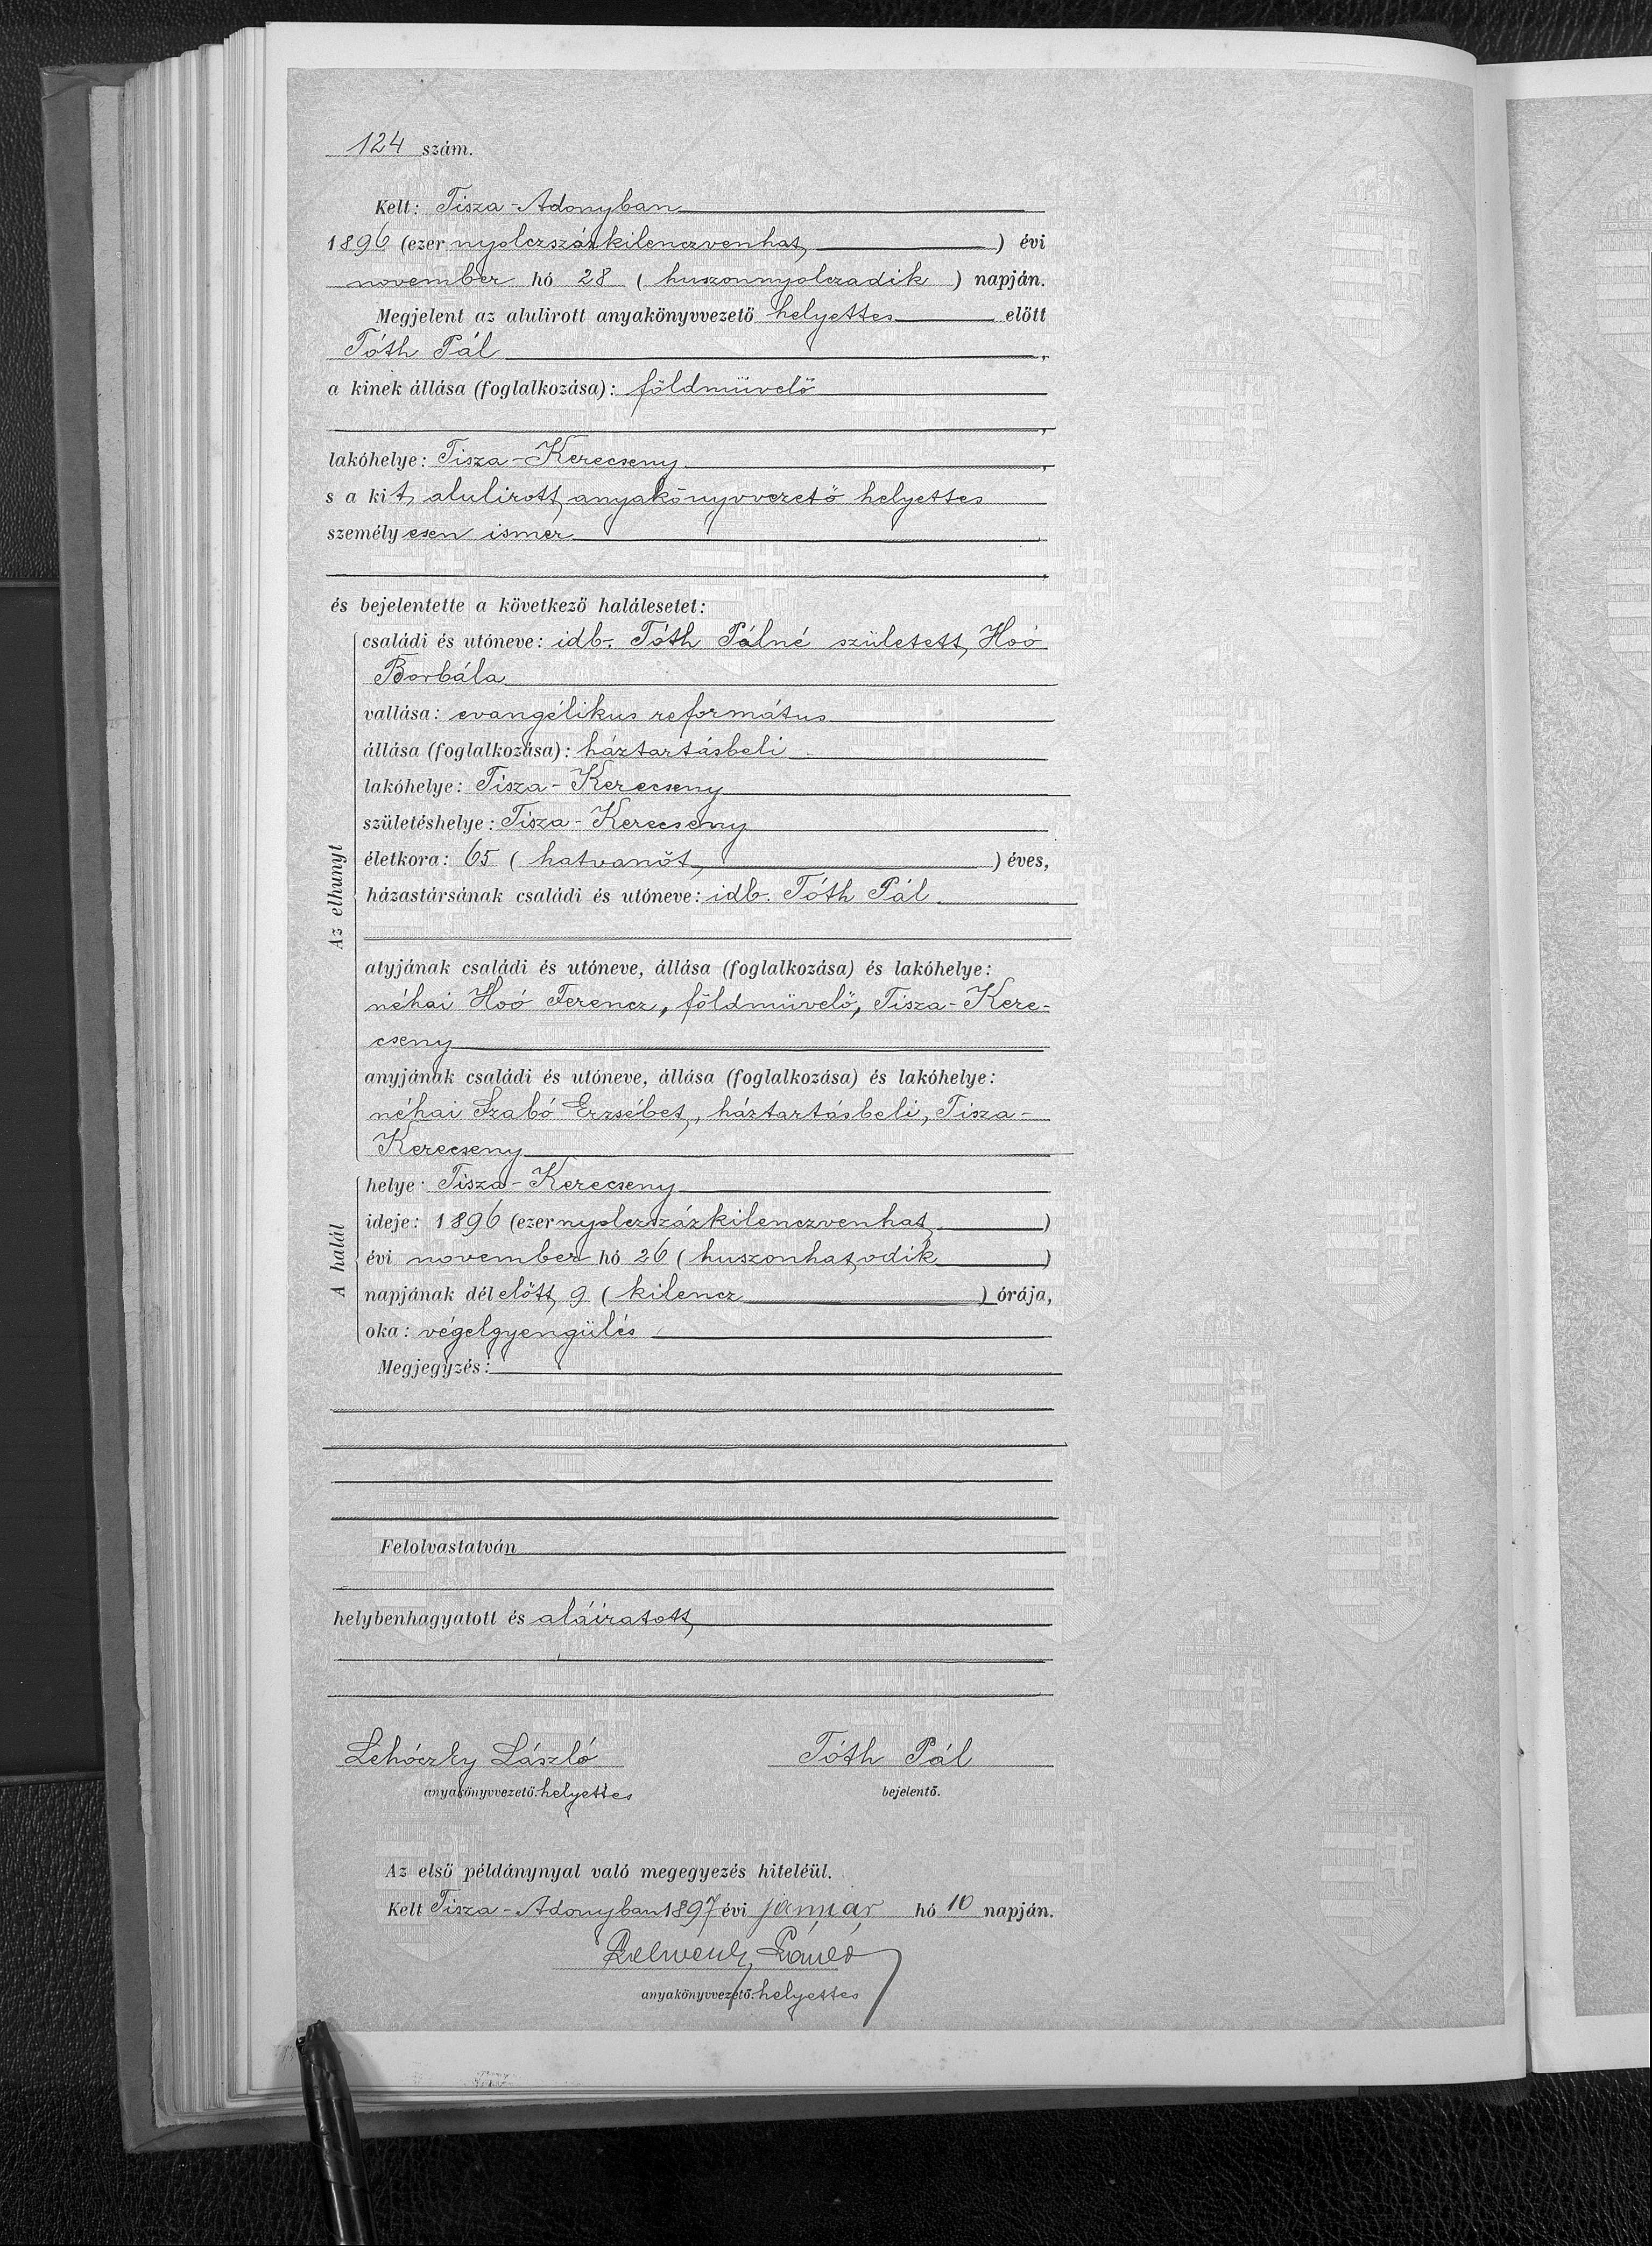 124 szám.
Kelt: Tisza-Adonyban
1896 (ezer nyolczszázkilenczvenhat) évi
november hó 28 (huszonnyolczadik) napján.
Megjelent az alulirott anyakönyvvezető helyettes előtt
Tóth Pál,
a kinek állása (foglalkozása): földmüvelő
,
lakóhelye: Tisza-Kerecseny,
s a kit alulirott anyakönyvvezető helyettes
személyesen ismer
és bejelentette a következő halálesetet:
Az elhunyt
családi és utóneve: idb. Tóth Pálné született Hoó
Borbála
vallása: evangélikus református
állása (foglalkozása): háztartásbeli
lakóhelye: Tisza-Kerecseny
születéshelye: Tisza-Kerecseny
életkora: 65 (hatvanöt) éves,
házastársának családi és utóneve: idb. Tóth Pál
atyjának családi és utóneve, állása (foglalkozása) és lakóhelye:
néhai Hoó Ferencz, földmüvelő, Tisza-Kere-
cseny
anyjának családi és utóneve, állása (foglalkozása) és lakóhelye:
néhai Szabó Erzsébet, háztartásbeli, Tisza-
Kerecseny
A halál
helye: Tisza-Kerecseny
ideje: 1896 (ezernyolczszázkilenczvenhat)
évi november hó 26 (huszonhatodik)
napjának délelőtt 9 (kilencz) órája,
oka: végelgyengülés
Megjegyzés:
Felolvastatván
helybenhagyatott és aláiratott
Lehóczky László Tóth Pál
anyakönyvvezető. helyettes bejelentő.
Az első példánynyal való megegyezés hiteléül.
Kelt Tisza-Adonyban 1897 évi január hó 10 napján.
anyakönyvvezető. helyettes